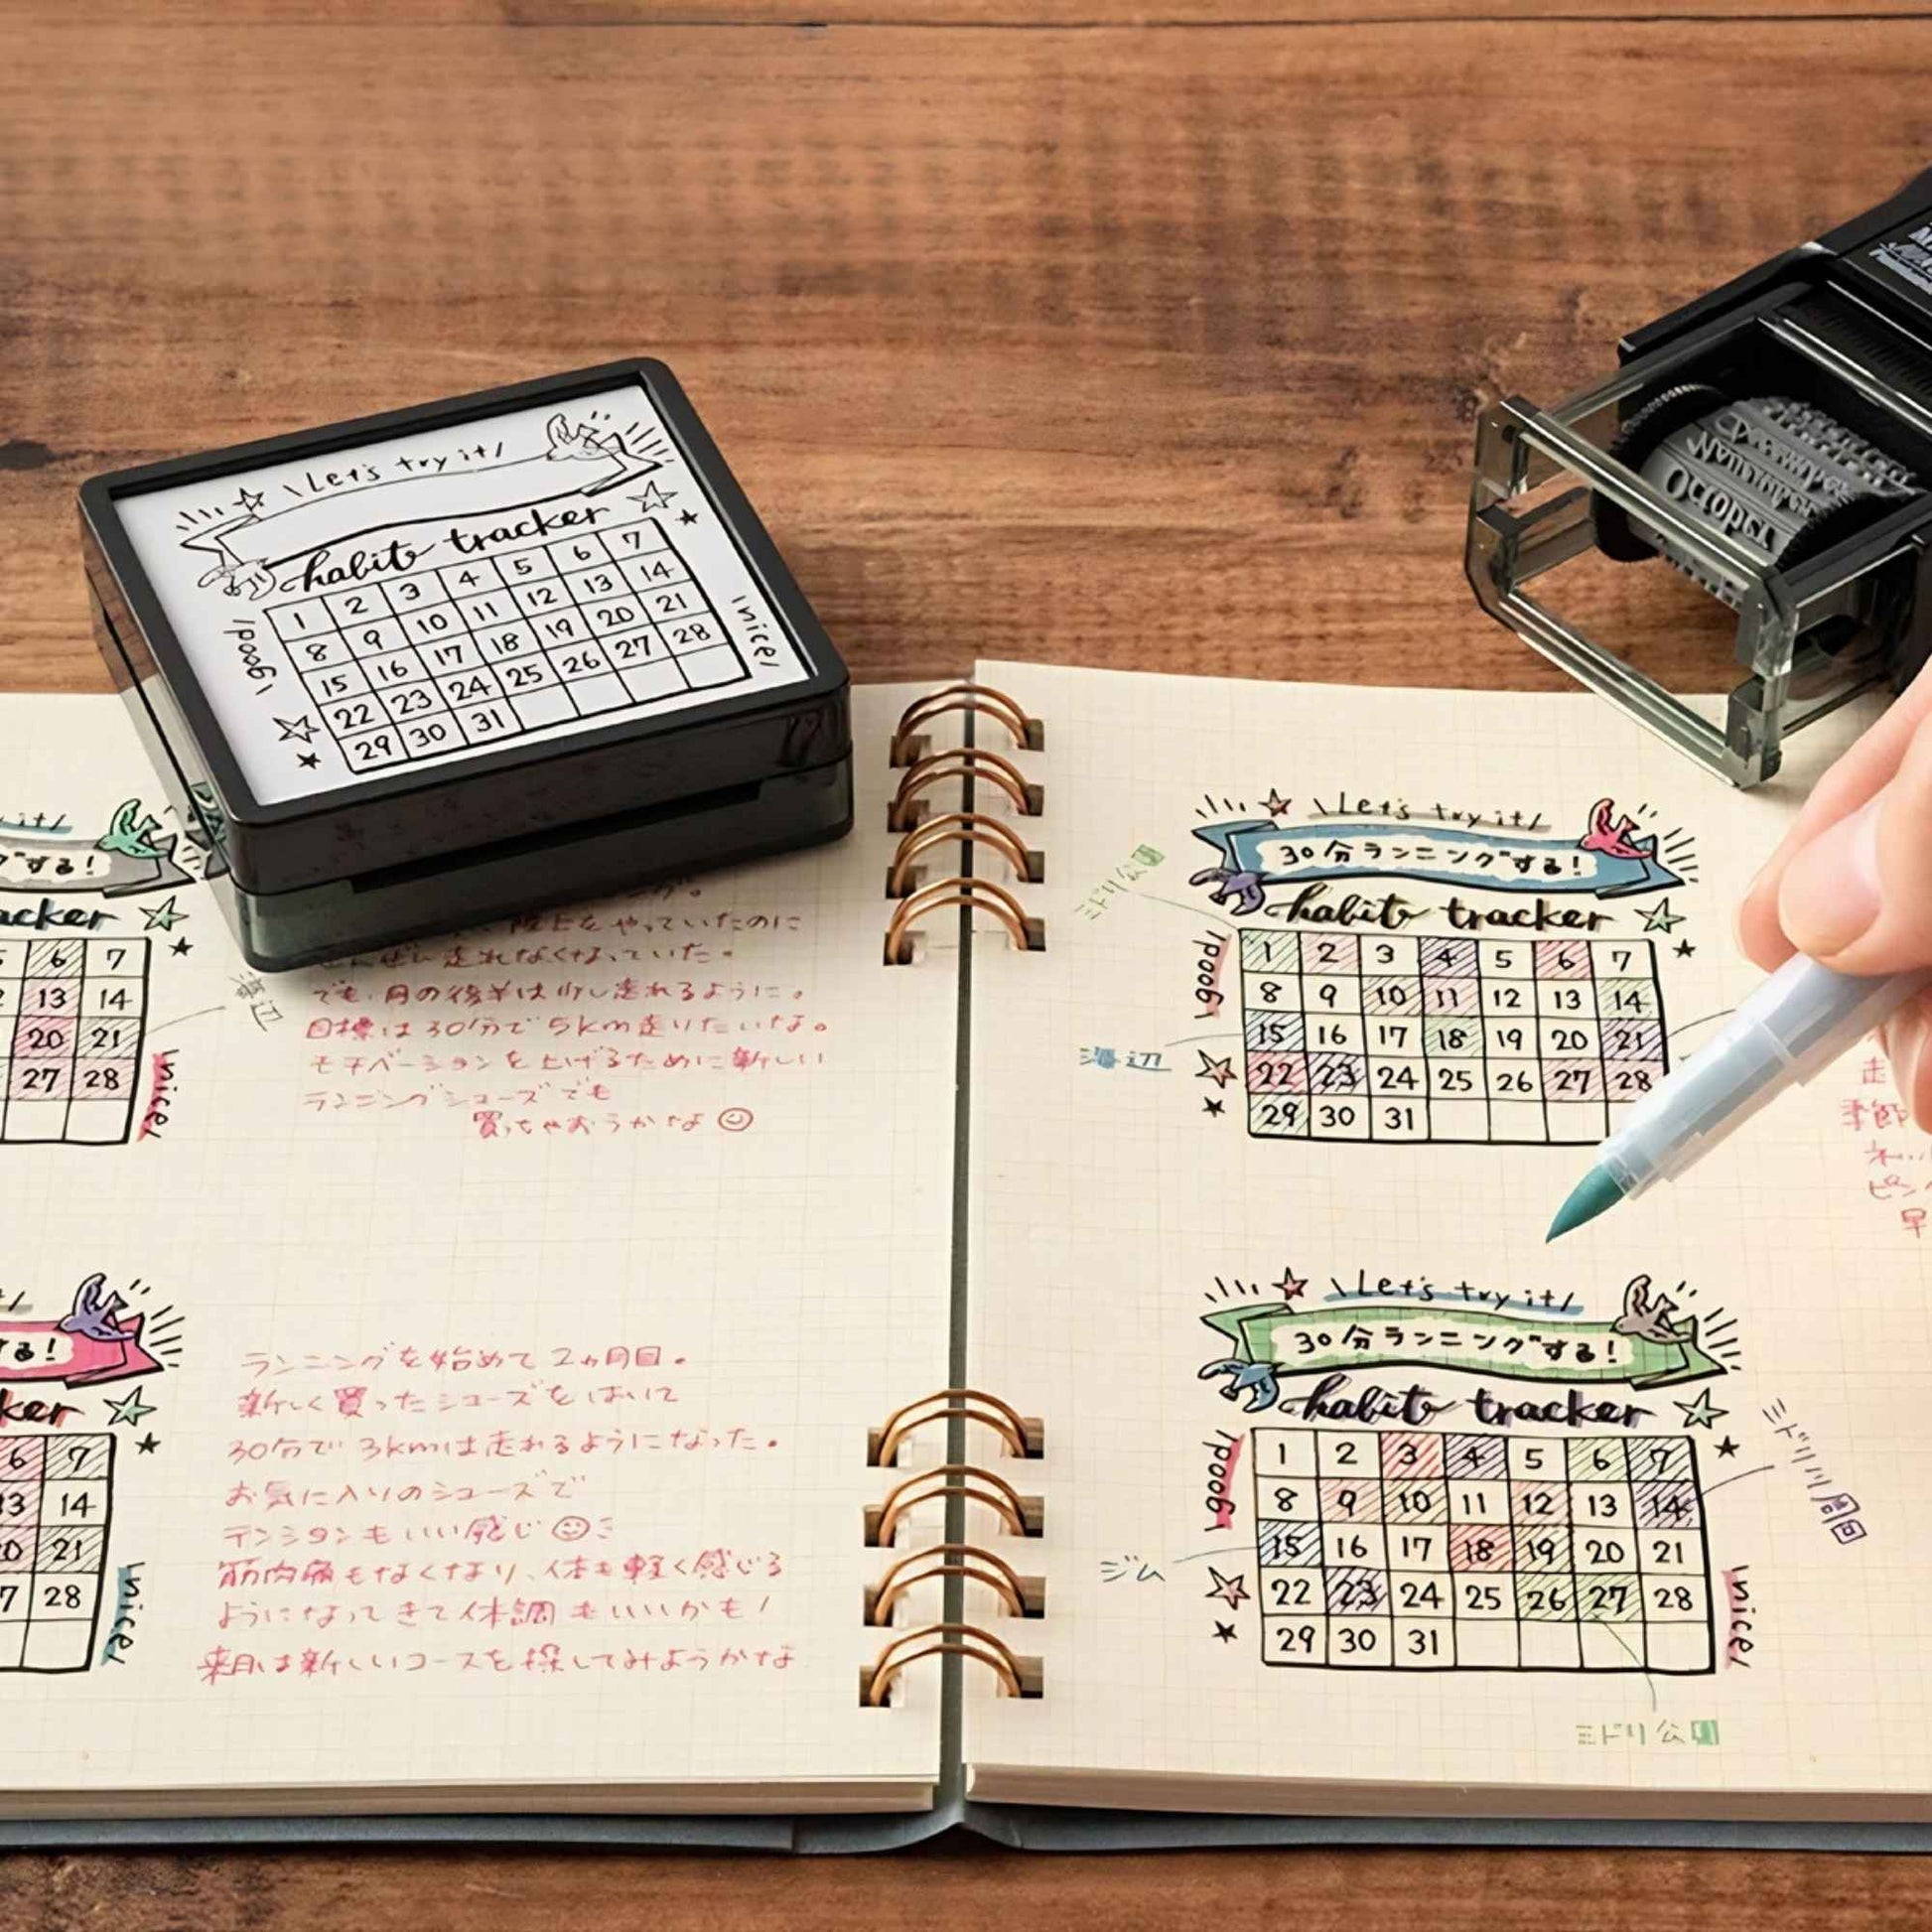 \Let's try it/
habit tracker
\good/
\nice/
1 2 3 4 5 6 7
8 9 10 11 12 13 14
15 16 17 18 19 20 21
22 23 24 25 26 27 28
29 30 31
October
it/
する!
acker
6 7
13 14
20 21
27 28
\nice/
海辺
陸上をやっていたのに
ぜんぜん走れなくなっていた。
でも、月の後半は少し走れるように。
目標は30分で5km走りたいな。
モチベーションを上げるために新しい
ランニングシューズでも
買っちゃおうかな
る!
ker
6 7
13 14
21
28
\nice/
ランニングを始めて2ヵ月目。
新しく買ったシューズをはいて
30分で3kmは走れるようになった。
お気に入りのシューズで
テンションもいい感じ
筋肉痛もなくなり、体も軽く感じる
ようになってきて体調もいいかも!
来月は新しいコースを探してみようかな
\Let's try it/
30分ランニングする!
habit tracker
ミドリ公園
\good/
海辺
1 2 3 4 5 6 7
8 9 10 11 12 13 14
15 16 17 18 19 20 21
22 23 24 25 26 27 28
29 30 31
走
季節
早
\Let's try it/
30分ランニングする!
habit tracker
\good/
\nice/
ミドリ川周回
ジム
1 2 3 4 5 6 7
8 9 10 11 12 13 14
15 16 17 18 19 20 21
22 23 24 25 26 27 28
29 30 31
ミドリ公園